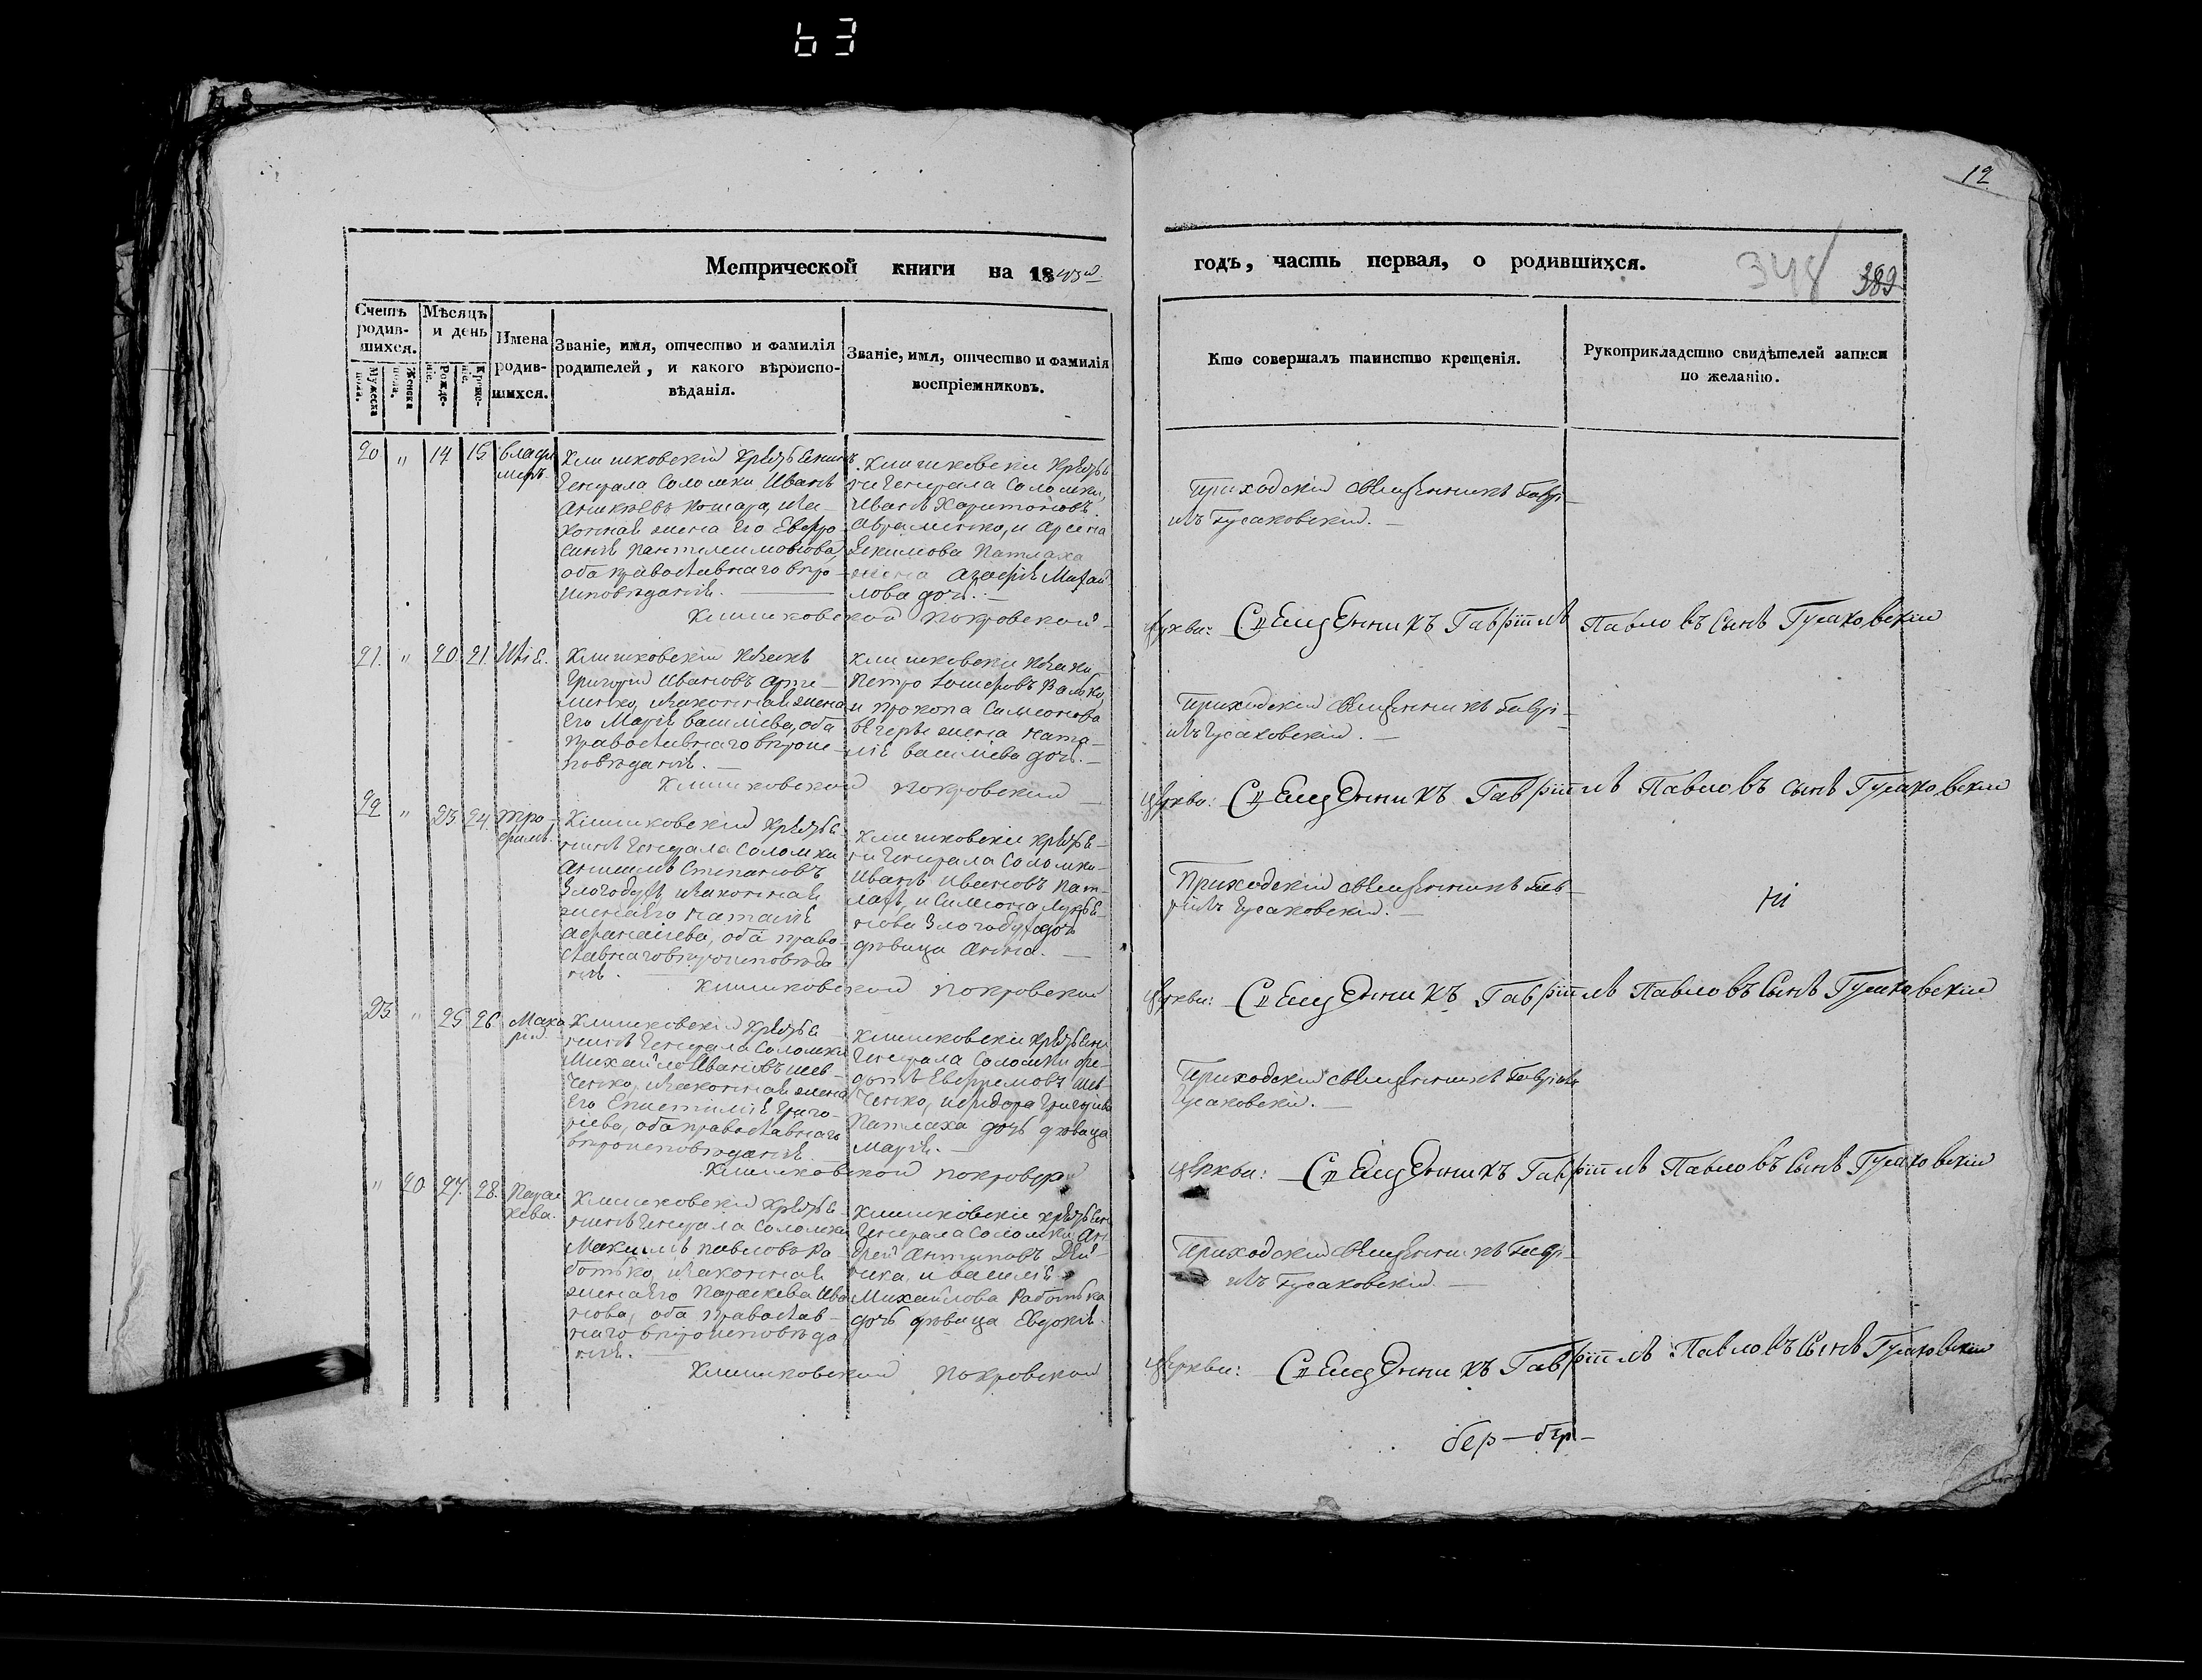 63
12
Метрической книги на 1843й
годъ, часть первая, о родившихся.
348
389
Счетъ родив-шихся.
Мужеска пола.
Женска пола.
Мѣсяцъ и день
Рожде-нія.
Креще-нія.
Имена родив-шихся.
Званіе, имя, отчество и фамилія
родителей, и какого вѣроиспо-
вѣданія.
Званіе, имя, отчество и фамилія
воспріемниковъ.
Кто совершалъ таинство крещенія.
Рукоприкладство свидѣтелей записи
по желанію.
20 " 14 15 Влади
миръ.
Клишковскій крестьянинъ
Генерала Соломки Иванъ
законная жена его Евфро
синія Пантелеимонова,
оба православнаго вѣро
исповѣданія.
Клишковскіи крестья
ни Генерала Соломки,
Иванъ Харитоновъ
Авраменко, и
Екимова Патлаха
жена Агафія Михай
лова дочь.
Приходскій священникъ Гаврі
илъ Гусаковскій.
Клишковской Покровской
церкви: Священникъ Гавріилъ Павловъ сынъ Гусаковскій
21. " 20 21
Клишковскій козакъ
Григорій Ивановъ
законная жена
его Марія Василіева, оба
православнаго вѣроис
повѣданія.
Клишковскіи козаки
Петро
и Прокопа Симеонова
жена Ната
лія Василіева дочь.
Приходскій священникъ Гаврі
илъ Гусаковскій.
Клишковской Покровской
церкви: Священникъ Гавріилъ Павловъ сынъ Гусаковскій
22 " 23 24. Тро
фимъ.
Клишковскій крестья
нинъ Генерала Соломки
Степановъ
законная
жена его Наталія
Афанасіева, оба право
славнаго вѣроисповѣда
нія.
Клишковскіи крестья
ни Генерала Соломки
Иванъ Ивановъ Пат
лахъ, и Симеона Лукья
нова дочь
дѣвица Анна.
Приходскій священникъ Гав
ріилъ Гусаковскій.
Клишковской Покровской
церкви: Священникъ Гавріилъ Павловъ сынъ Гусаковскій
23 " 25 26 Мака
рій.
Клишковскій крестья
нинъ Генерала Соломки
Михайло Ивановъ Шев
ченко, законная жена
его Епистимія Григо
ріева, оба православнаго
вѣроисповѣданія.
Клишковскіи крестьяни
Генерала Соломки Фе
дотъ Евфремовъ Шев
ченко, Исидора Григоріева
Патлаха дочь дѣвица
Марія.
Приходскій священникъ Гавріилъ
Гусаковскій.
Клишковской Покровской
церкви: Священникъ Гавріилъ Павловъ сынъ Гусаковскій
" 20 27. 28. Парас
кева.
Клишковскій крестья
нинъ Генерала Соломки
Максимъ Павловъ Ра
ботько, законная
жена его Параскева Ива
нова, оба православ
наго вѣроисповѣда
нія.
Клишковскіе крестьяни
Генерала Соломки Ан
дрей Антиповъ Дей
нека, и Василія
Михайлова Работька
дочь дѣвица Евдокія.
Приходскій священникъ Гаврі
илъ Гусаковскій
Клишковской Покровской
церкви: Священникъ Гавріилъ Павловъ сынъ Гусаковскій